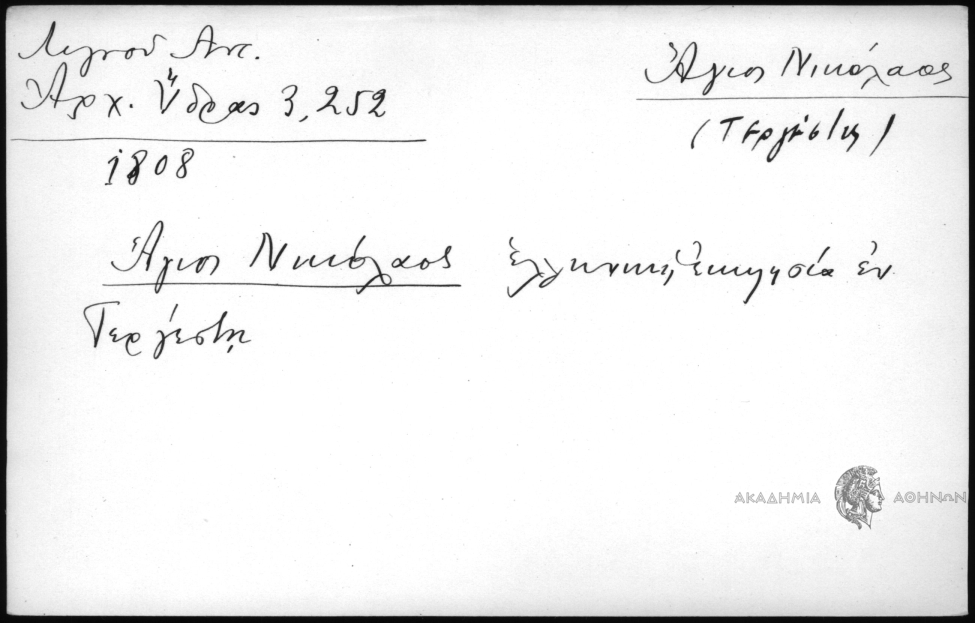 Λιγνού Αντ.
Ἀρχ. Ὕδρας 3, 252
1808
Ἅγιος Νικόλαος
(Τεργέστη)
Ἅγιος Νικόλαος ἑλληνική ἐκκλησία ἐν
Τεργέστῃ
ΑΚΑΔΗΜΙΑ ΑΘΗΝΩΝ